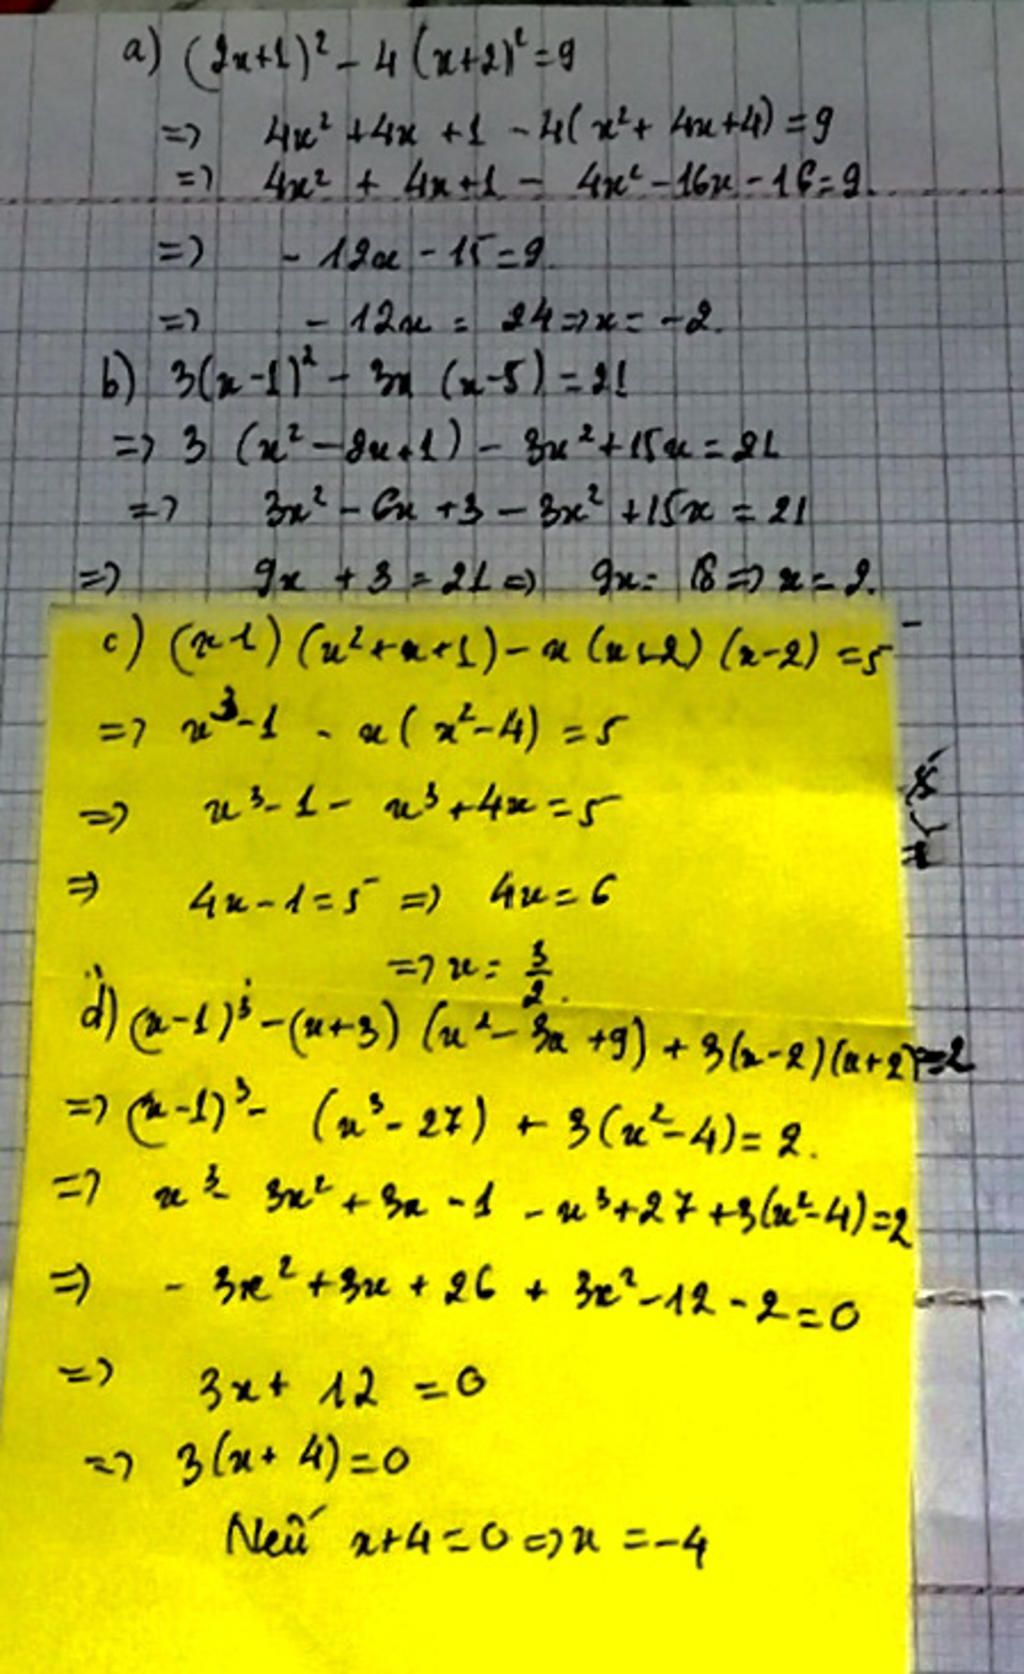 a) (2x+1)² - 4(x+2)² = 9
=> 4x² + 4x + 1 - 4(x² + 4x + 4) = 9
=> 4x² + 4x + 1 - 4x² - 16x - 16 = 9.
=> - 12x - 15 = 9.
=> - 12x = 24 => x = -2.
b) 3(x-1)² - 3x (x-5) = 21
=> 3 (x² - 2x + 1) - 3x² + 15x = 21
=> 3x² - 6x + 3 - 3x² + 15x = 21
=> 9x + 3 = 21 => 9x = 18 => x = 2.
c) (x-1) (x² + x + 1) - x (x+2) (x-2) = 5
=> x³ - 1 - x (x² - 4) = 5
=> x³ - 1 - x³ + 4x = 5
=> 4x - 1 = 5 => 4x = 6
=> x = 3/2.
d) (x-1)³ - (x+3) (x² - 3x + 9) + 3(x-2)(x+2) = 2
=> (x-1)³ - (x³ - 27) + 3(x² - 4) = 2.
=> x³ - 3x² + 3x - 1 - x³ + 27 + 3(x² - 4) = 2
=> - 3x² + 3x + 26 + 3x² - 12 - 2 = 0
=> 3x + 12 = 0
=> 3(x + 4) = 0
Neú x + 4 = 0 => x = -4